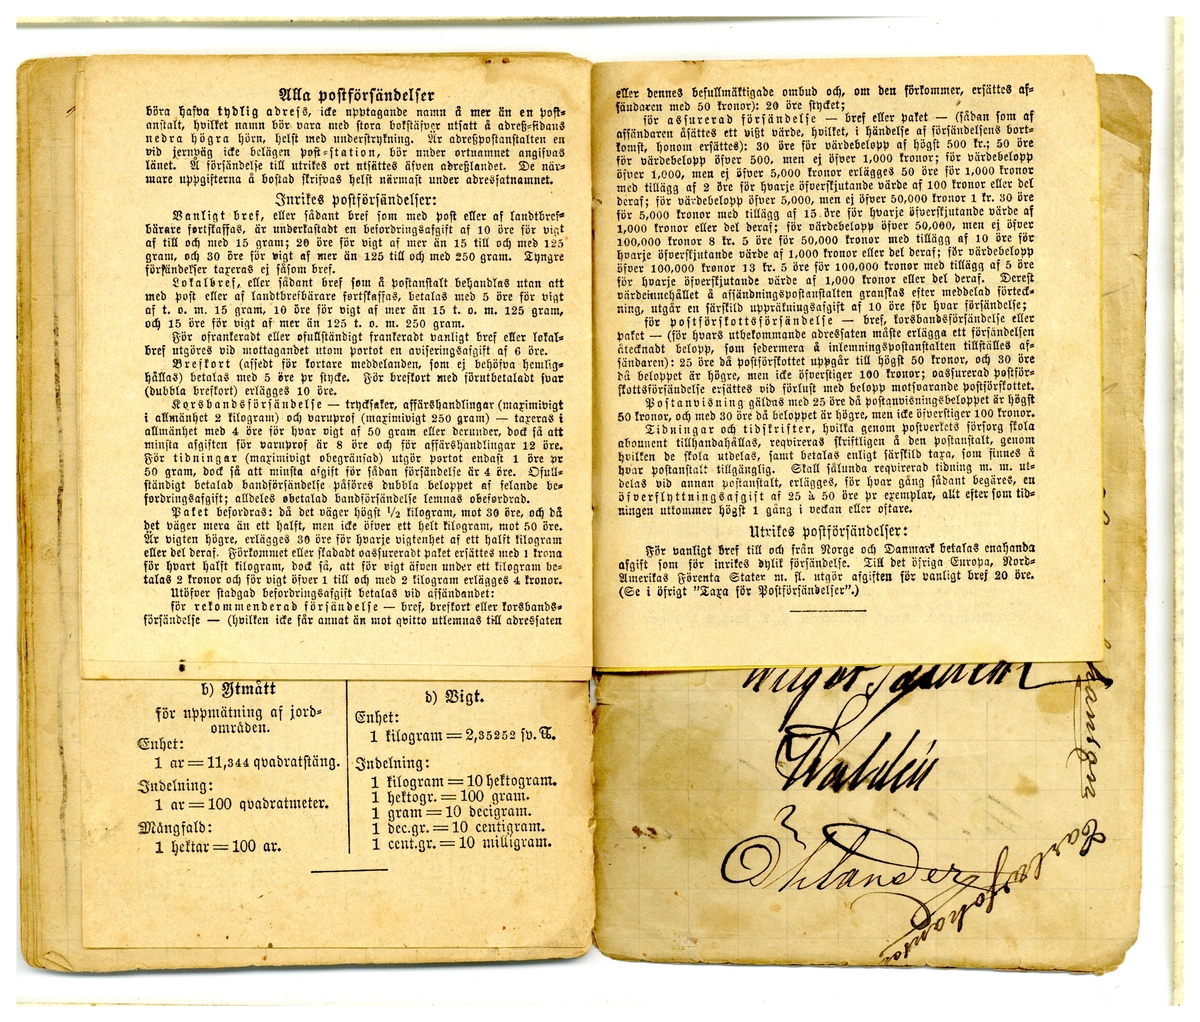 Alla postförsändelser
böra hafva tydlig adress, icke upptagande namn å mer än en post-
anstalt, hvilket namn bör vara med stora bokstäfver utsatt å adreß-sidans
nedra högra hörn, helst med understrykning. Är adreßpostanstalten en
vid jernväg icke belägen post-station, bör under ortnamnet angifvas
länet. Å försändelse till utrikes ort utsättes äfven adreßlandet. De när-
mare uppgifterna å bostad skrifvas helst närmast under adressatnamnet.
Inrikes postförsändelser:
Vanligt bref, eller sådant bref som med post eller af landtbref-
bärare fortskaffas, är underkastadt en befordringsafgift af 10 öre för vigt
af till och med 15 gram; 20 öre för vigt af mer än 15 till och med 125
gram, och 30 öre för vigt af mer än 125 till och med 250 gram. Tyngre
försändelser taxeras ej såsom bref.
Lokalbref, eller sådant bref som å postanstalt behandlas utan att
med post eller af landtbrefbärare fortskaffas, betalas med 5 öre för vigt
af t. o. m. 15 gram, 10 öre för vigt af mer än 15 t. o. m. 125 gram,
och 15 öre för vigt af mer än 125 t. o. m. 250 gram.
För ofrankeradt eller ofullständigt frankeradt vanligt bref eller lokal-
bref utgöres vid mottagandet utom portot en aviseringsafgift af 6 öre.
Brefkort (afsedt för kortare meddelanden, som ej behöfva hemlig-
hållas) betalas med 5 öre pr stycke. För brefkort med förutbetaladt svar
(dubbla brefkort) erlägges 10 öre.
Korsbandsförsändelse — trycksaker, affärshandlingar (maximivigt
i allmänhet 2 kilogram) och varuprof (maximivigt 250 gram) — taxeras i
allmänhet med 4 öre för hvar vigt af 50 gram eller derunder, dock så att
minsta afgiften för varuprof är 8 öre och för affärshandlingar 12 öre.
För tidningar (maximivigt obegränsad) utgör portot endast 1 öre pr
50 gram, dock så att minsta afgift för sådan försändelse är 4 öre. Ofull-
ständigt betalad bandförsändelse påföres dubbla beloppet af felande be-
fordringsafgift; alldeles obetalad bandförsändelse lemnas obefordrad.
Paket befordras: då det väger högst 1/2 kilogram, mot 30 öre, och då
det väger mera än ett halft, men icke öfver ett helt kilogram, mot 50 öre.
Är vigten högre, erlägges 30 öre för hvarje vigtenhet af ett halft kilogram
eller del deraf. Förkommet eller skadadt oassureradt paket ersättes med 1 krona
för hvart halft kilogram, dock så, att för vigt äfven under ett kilogram be-
talas 2 kronor och för vigt öfver 1 till och med 2 kilogram erlägges 4 kronor.
Utöfver stadgad befordringsafgift betalas vid afsändandet:
för rekommenderad försändelse — bref, brefkort eller korsbands-
försändelse — (hvilken icke får annat än mot qvitto utlemnas till adressaten
b) Ytmått
för uppmätning af jord-
områden.
Enhet:
1 ar = 11,344 qvadratstäng.
Indelning:
1 ar = 100 qvadratmeter.
Mångfald:
1 hektar = 100 ar.
d) Vigt.
Enhet:
1 kilogram = 2,35252 sv. ℔.
Indelning:
1 kilogram = 10 hektogram.
1 hektogr. = 100 gram.
1 gram = 10 decigram.
1 dec.gr. = 10 centigram.
1 cent.gr. = 10 milligram.
eller dennes befullmäktigade ombud och, om den förkommer, ersättes af-
sändaren med 50 kronor): 20 öre stycket;
för assurerad försändelse — bref eller paket — (sådan som af
afsändaren åsättes ett vißt värde, hvilket, i händelse af försändelsens bort-
komst, honom ersättes): 30 öre för värdebelopp af högst 500 kr.; 50 öre
för värdebelopp öfver 500, men ej öfver 1,000 kronor; för värdebelopp
öfver 1,000, men ej öfver 5,000 kronor erlägges 50 öre för 1,000 kronor
med tillägg af 2 öre för hvarje öfverskjutande värde af 100 kronor eller del
deraf; för värdebelopp öfver 5,000, men ej öfver 50,000 kronor 1 kr. 30 öre
för 5,000 kronor med tillägg af 15 öre för hvarje öfverskjutande värde af
1,000 kronor eller del deraf; för värdebelopp öfver 50,000, men ej öfver
100,000 kronor 8 kr. 5 öre för 50,000 kronor med tillägg af 10 öre för
hvarje öfverskjutande värde af 1,000 kronor eller del deraf; för värdebelopp
öfver 100,000 kronor 13 kr. 5 öre för 100,000 kronor med tillägg af 5 öre
för hvarje öfverskjutande värde af 1,000 kronor eller del deraf. Derest
värdeinnehållet å afsändningspostanstalten granskas efter meddelad förteck-
ning, utgår en särskild uppräkningsafgift af 10 öre för hvar försändelse;
för postförskottsförsändelse — bref, korsbandsförsändelse eller
paket — (för hvars utbekommande adressaten måste erlägga ett försändelsen
åtecknadt belopp, som sedermera å inlemningspostanstalten tillställes af-
sändaren): 25 öre då postförskottet uppgår till högst 50 kronor, och 30 öre
då beloppet är högre, men icke öfverstiger 100 kronor; oassurerad postför-
skottsförsändelse ersättes vid förlust med belopp motsvarande postförskottet.
Postanvisning gäldas med 25 öre då postanvisningsbeloppet är högst
50 kronor, och med 30 öre då beloppet är högre, men icke öfverstiger 100 kronor.
Tidningar och tidskrifter, hvilka genom postverkets försorg skola
abonnent tillhandahållas, reqvireras skriftligen å den postanstalt, genom
hvilken de skola utdelas, samt betalas enligt särskild taxa, som finnes å
hvar postanstalt tillgänglig. Skall sålunda reqvirerad tidning m. m. ut-
delas vid annan postanstalt, erlägges, för hvar gång sådant begäres, en
öfverflyttningsafgift af 25 à 50 öre pr exemplar, allt efter som tid-
ningen utkommer högst 1 gång i veckan eller oftare.
Utrikes postförsändelser:
För vanligt bref till och från Norge och Danmark betalas enahanda
afgift som för inrikes dylik försändelse. Till det öfriga Europa, Nord-
Amerikas Förenta Stater m. fl. utgör afgiften för vanligt bref 20 öre.
(Se i öfrigt "Taxa för Postförsändelser".)
Waldén
Ohlander
Carl Johanson